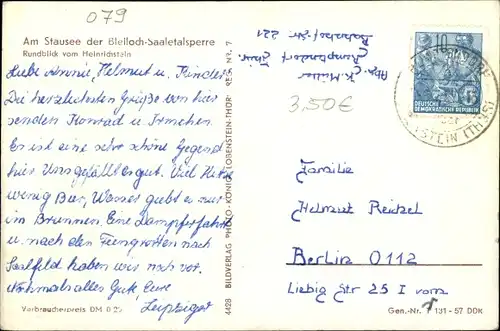 079
Am Stausee der Bleiloch-Saaletalsperre
Rundblick vom Heinrichstein
Liebe Annie, Helmut u. Kinder
Die herzlichsten Grüße von hier
senden Konrad u. Irmchen
Es ist eine sehr schöne Gegend
hier Uns gefällt es gut. Viel Hitze
wenig Bier, Wasser giebt es nur
in Brunnen. Eine Dampferfahrt
u. nach den Feengrotten nach
Saalfeld haben wir noch vor.
Nochmals alles Gute, Eure
Leipziger
Verbraucherpreis DM 0
4428 BILDVERLAG KÖNIG LOBENSTEIN-THÜR. REG. NR. 7
Abs. K. Müller
221
3,50€
10
DEUTSCHE
DEMOKRATISCHE REPUBLIK
STEIN (THÜR)
Familie
Helmut Reitzel
Berlin 0112
Liebig Str 25 I vorn
Gen.-Nr. T 131-57 DDR